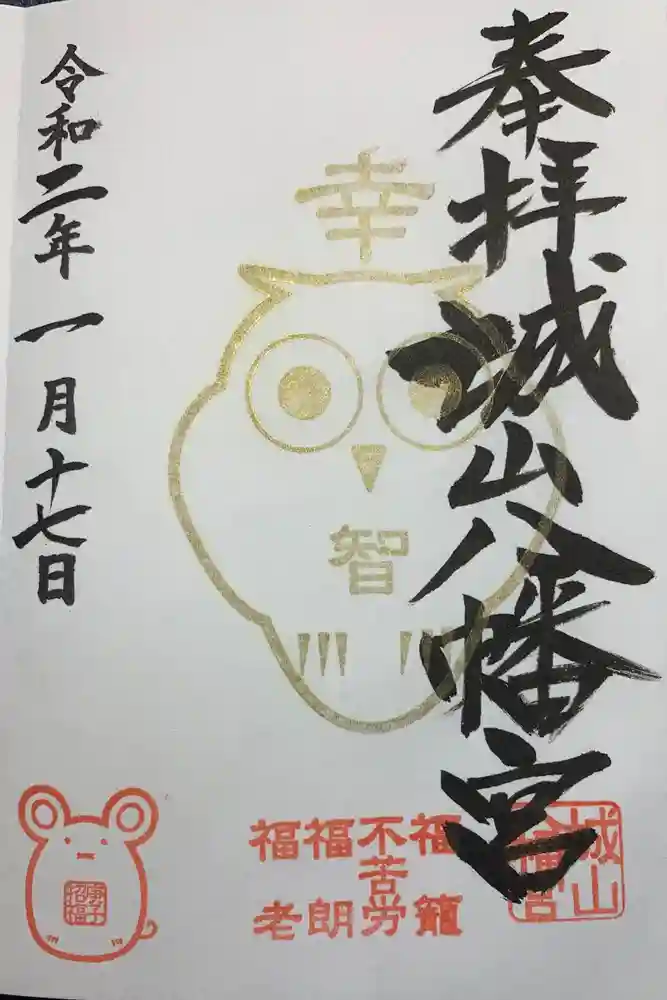 奉拝城山八幡宮
城山
八幡宮
幸
智
福籠
不苦労
福朗
福老
令和二年一月十七日
庚子
招福